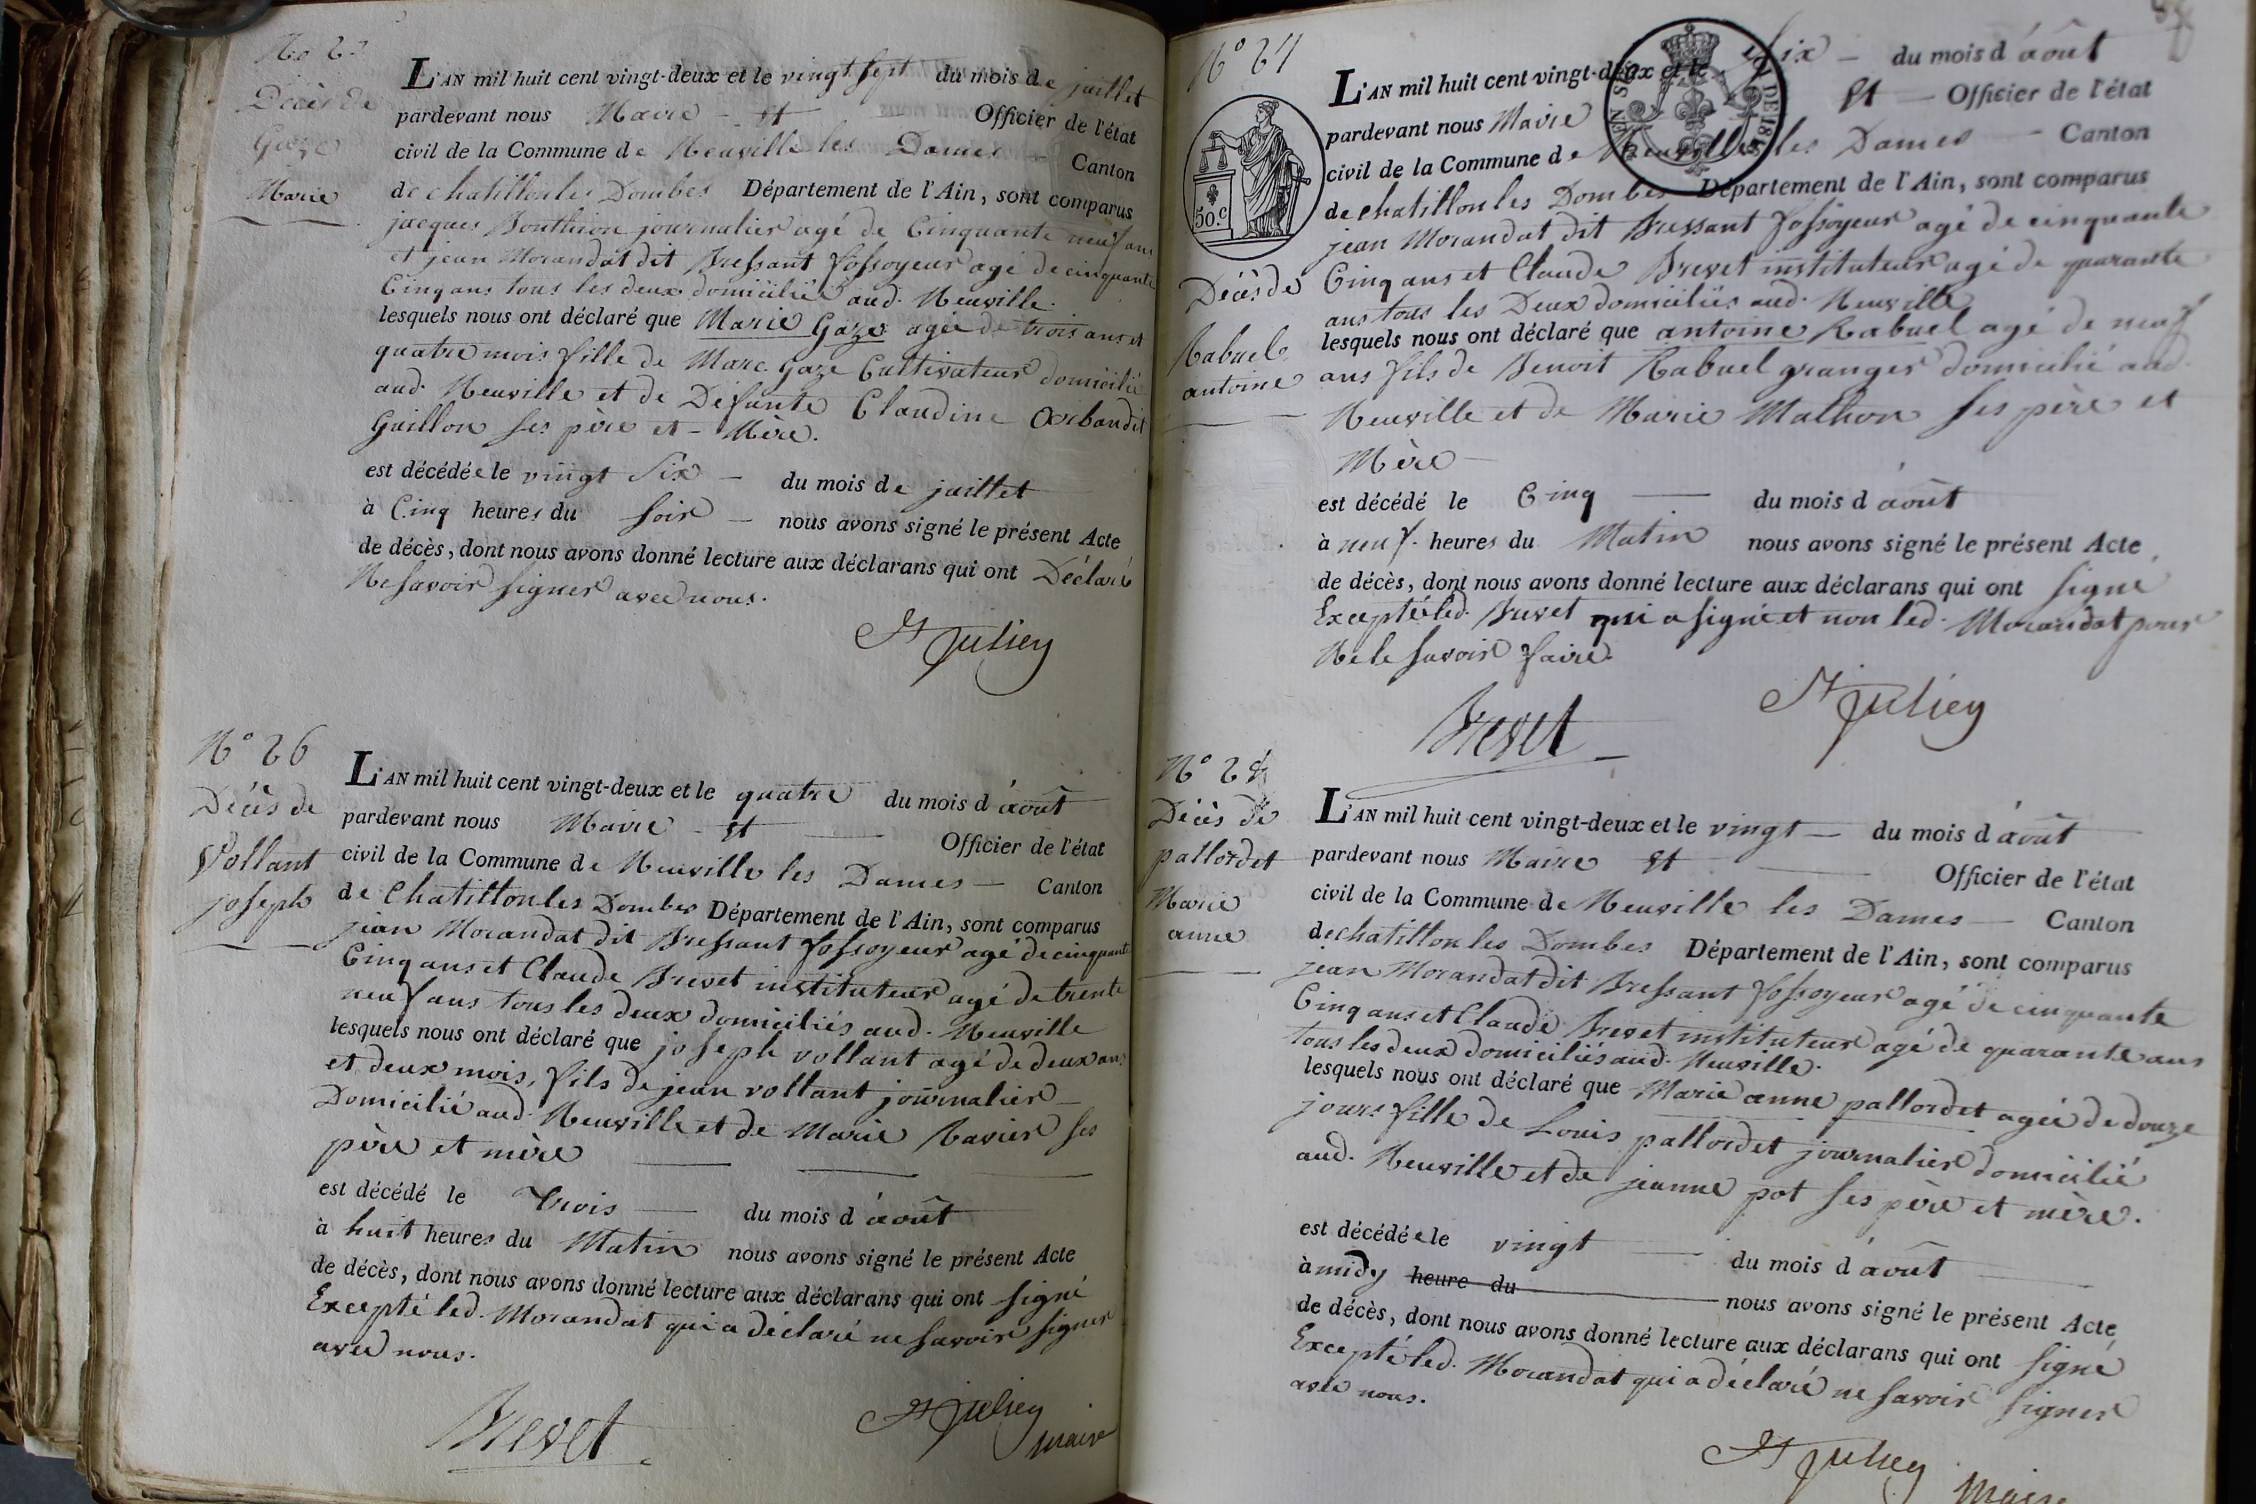 Décès de
Gaze
Marie
L'AN mil huit cent vingt-deux et le vingt sept du mois de juillet
pardevant nous Maire et Officier de l'état
civil de la Commune de Neuville les Dames Canton
de chatillon les Dombes Département de l'Ain, sont comparus
jacques Bonthion journalier agé de Cinquante neuf ans
et jean Morandat dit Bressant fossoyeur agé de cinquante
Cinq ans tous les deux domiciliés aud. Neuville.
lesquels nous ont déclaré que Marie Gaze agée de trois ans et
quatre mois fille de Marc Gaze Cultivateur domicilié
aud. Neuville et de Défunte Claudine
Guillon ses père et - Mère.
est décédée le vingt six - du mois de juillet
à Cinq heures du soir - nous avons signé le présent Acte
de décès, dont nous avons donné lecture aux déclarans qui ont Déclaré
Ne savoir signer avec nous.
St Julien
N° 26
Décès de
Vollant
joseph
L'AN mil huit cent vingt-deux et le quatre du mois d'août
pardevant nous Maire et Officier de l'état
civil de la Commune de Neuville les Dames - Canton
de Chatillon les Dombes Département de l'Ain, sont comparus
jean Morandat dit Bressant fossoyeur agé de cinquante
Cinq ans et Claude Brevet instituteur agé de trente
neuf ans tous les deux domiciliés aud. Neuville
lesquels nous ont déclaré que joseph vollant agé de deux ans
et deux mois, fils de jean vollant journalier
Domicilié aud. Neuville et de Marie Ravier ses
père et mère
est décédé le Trois du mois d'août
à huit heures du Matin nous avons signé le présent Acte
de décès, dont nous avons donné lecture aux déclarans qui ont signé
Excepté led. Morandat qui a déclaré ne savoir signer
avec nous.
Brevet St Julien
maire
N° 27
50.c
Décès de
Rabuel
antoine
L'AN mil huit cent vingt-deux et le six - du mois d'août
pardevant nous Maire et - Officier de l'état
civil de la Commune de Neuville les Dames - Canton
de chatillon les Dombes Département de l'Ain, sont comparus
jean Morandat dit Bressant fossoyeur agé de cinquante
Cinq ans et Claude Brevet instituteur agé de quarante
ans tous les Deux domiciliés aud. Neuville
lesquels nous ont déclaré que antoine Rabuel agé de neuf
ans fils de Benoit Rabuel granger domicilié aud.
Neuville et de Marie Mathon ses père et
Mère
est décédé le Cinq du mois d'août
à neuf heures du Matin nous avons signé le présent Acte
de décès, dont nous avons donné lecture aux déclarans qui ont signé
Excepté led. Brevet qui a signé et non led. Morandat pour
Ne le savoir faire.
Brevet St Julien
N° 28
Décès de
pallordet
Marie
anne
L'AN mil huit cent vingt-deux et le vingt - du mois d'août
pardevant nous Maire et Officier de l'état
civil de la Commune de Neuville les Dames - Canton
de chatillon les Dombes Département de l'Ain, sont comparus
jean Morandat dit Bressant fossoyeur agé de cinquante
Cinq ans et Claude Brevet instituteur agé de quarante ans
tous les deux domiciliés aud. Neuville.
lesquels nous ont déclaré que Marie anne pallordet agée de douze
jours fille de Louis pallordet journalier domicilié
aud. Neuville et de jeanne pot ses père et mère.
est décédée le vingt du mois d'août
à midy heure du nous avons signé le présent Acte
de décès, dont nous avons donné lecture aux déclarans qui ont signé
Excepté led. Morandat qui a déclaré ne savoir signer
avec nous.
St Julien maire